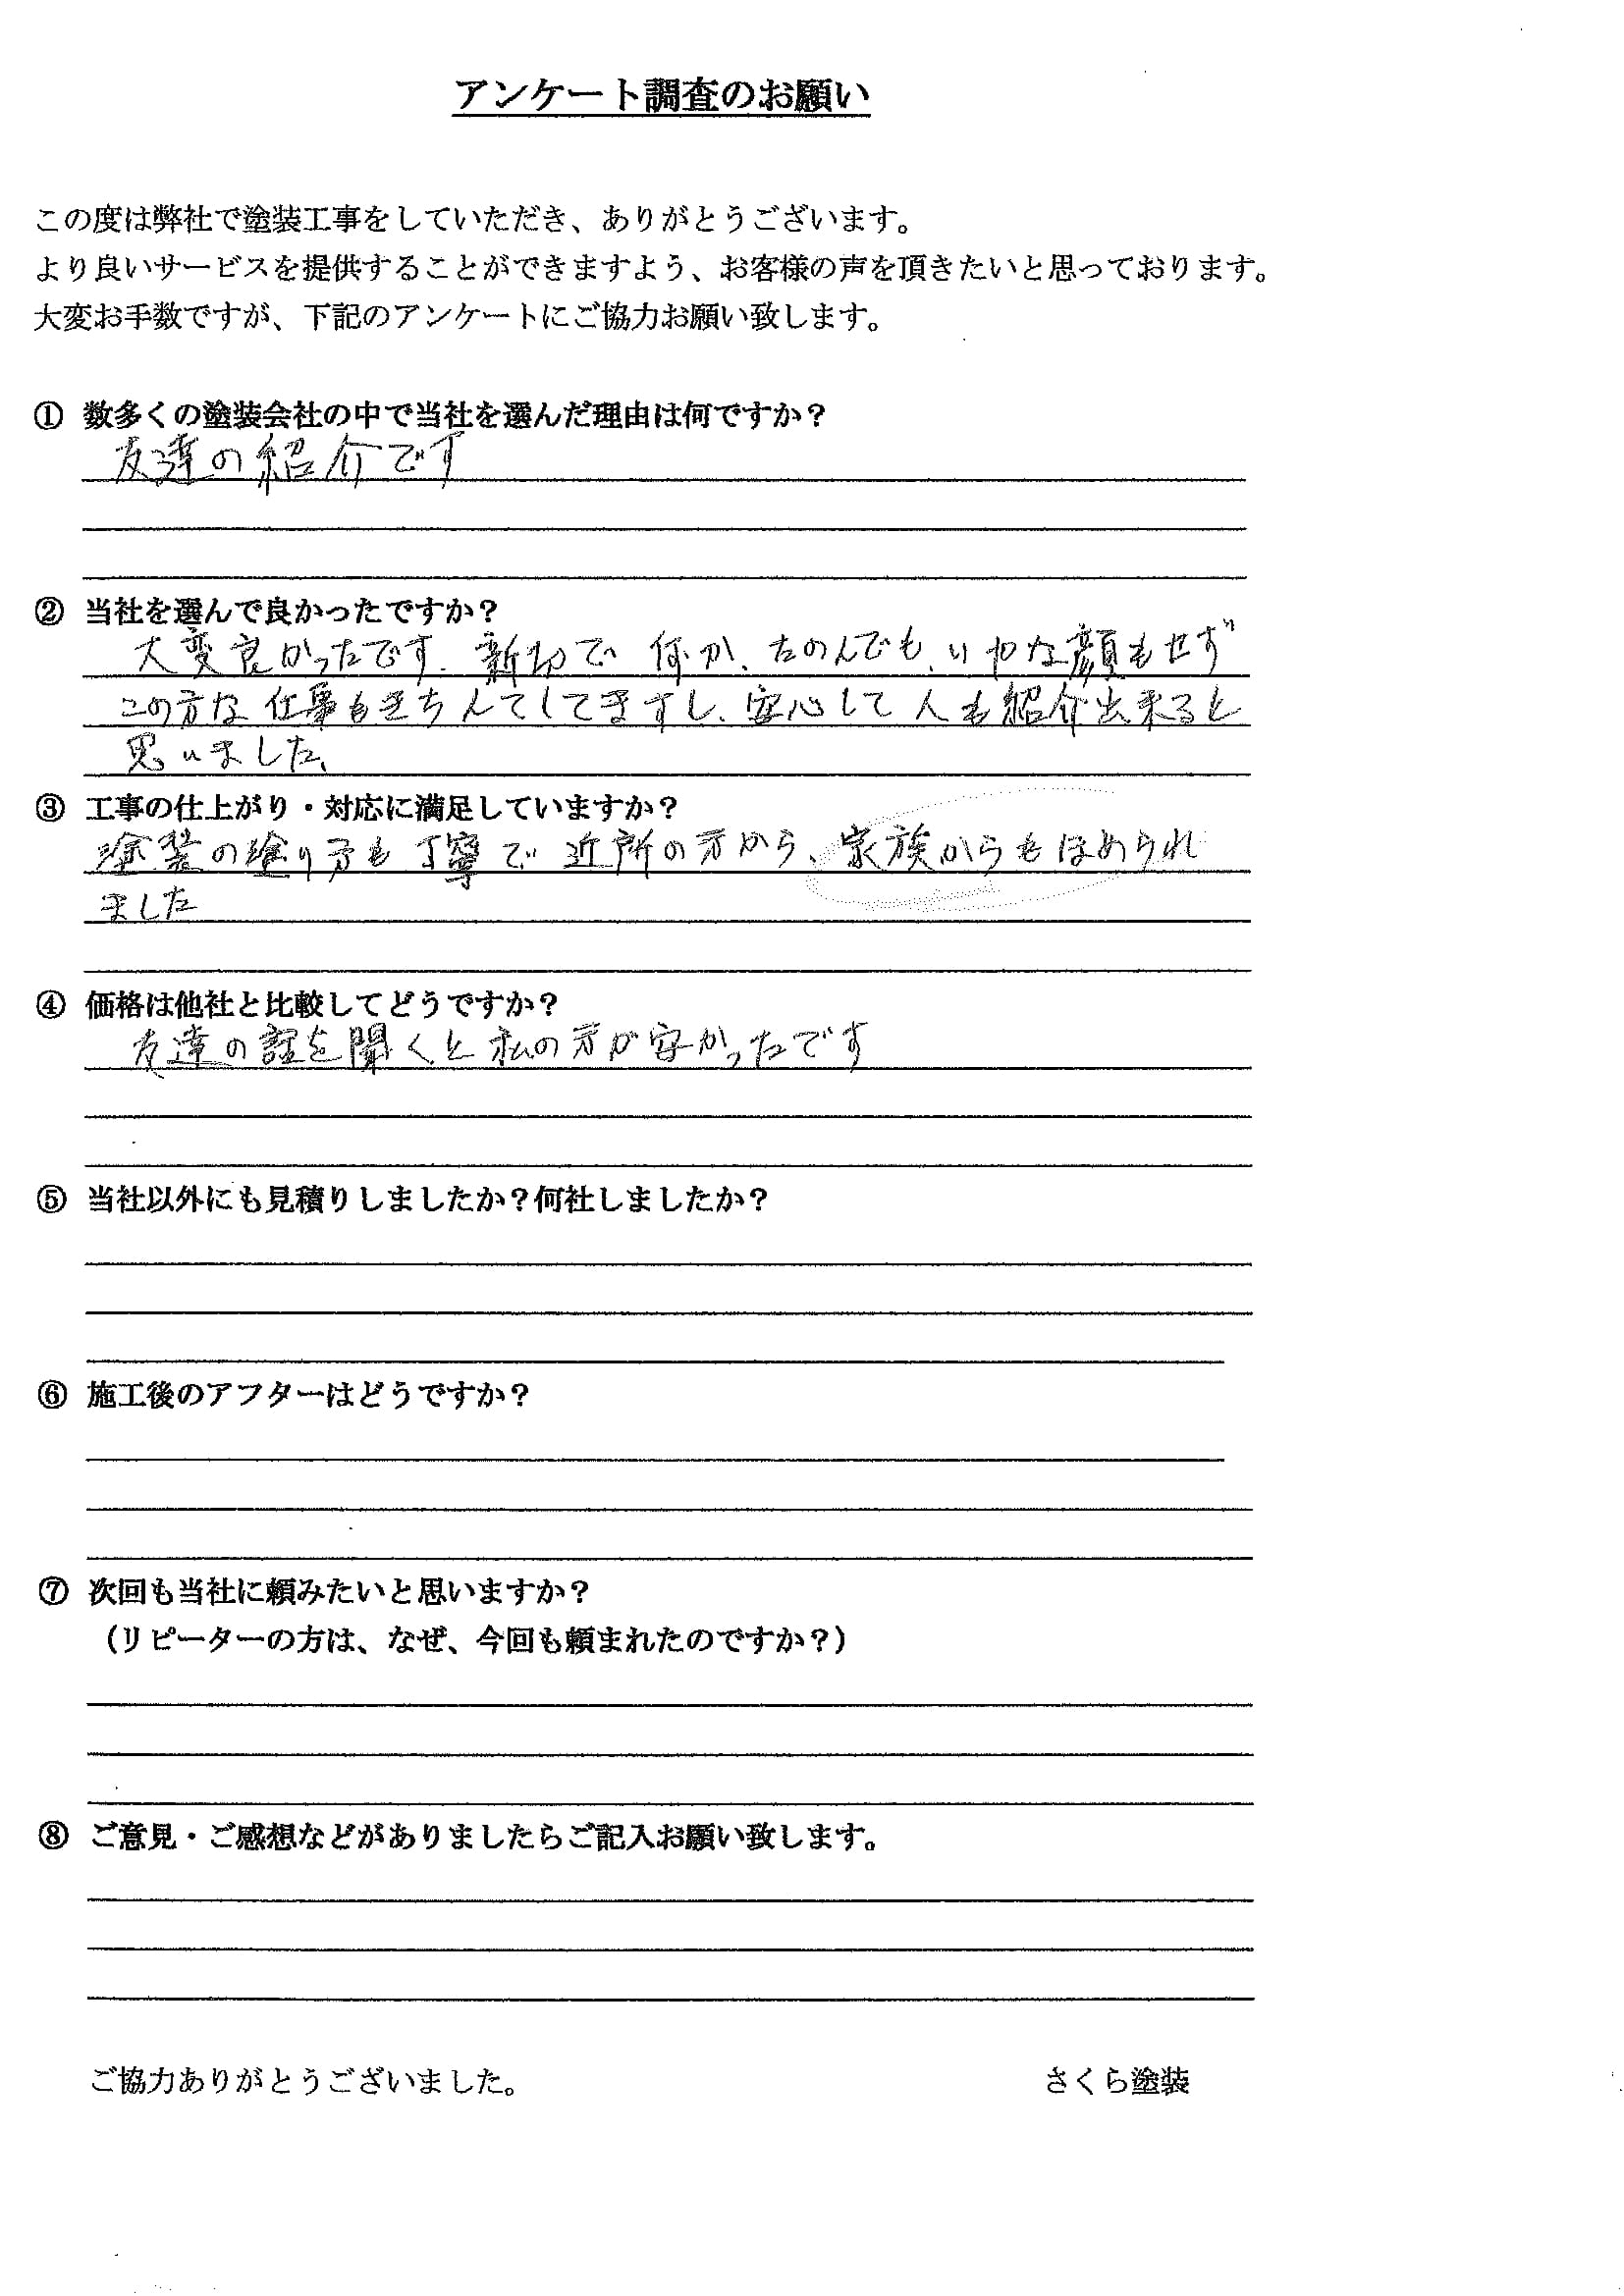 アンケート調査のお願い
この度は弊社で塗装工事をしていただき、ありがとうございます。
より良いサービスを提供することができますよう、お客様の声を頂きたいと思っております。
大変お手数ですが、下記のアンケートにご協力お願い致します。
① 数多くの塗装会社の中で当社を選んだ理由は何ですか？
友達の紹介です
② 当社を選んで良かったですか？
大変良かったです。新切で何か、たのんでも、いやな顔もせず
この方な仕事もきちんてしてますし、安心して人も紹介出来ると
思いました、
③ 工事の仕上がり・対応に満足していますか？
塗装の塗り方も丁寧で近所の方から、家族からもほめられ
ました
④ 価格は他社と比較してどうですか？
友達の話を聞くと私の方が安かったです
⑤ 当社以外にも見積りしましたか？何社しましたか？
⑥ 施工後のアフターはどうですか？
⑦ 次回も当社に頼みたいと思いますか？
（リピーターの方は、なぜ、今回も頼まれたのですか？）
⑧ ご意見・ご感想などがありましたらご記入お願い致します。
ご協力ありがとうございました。 さくら塗装